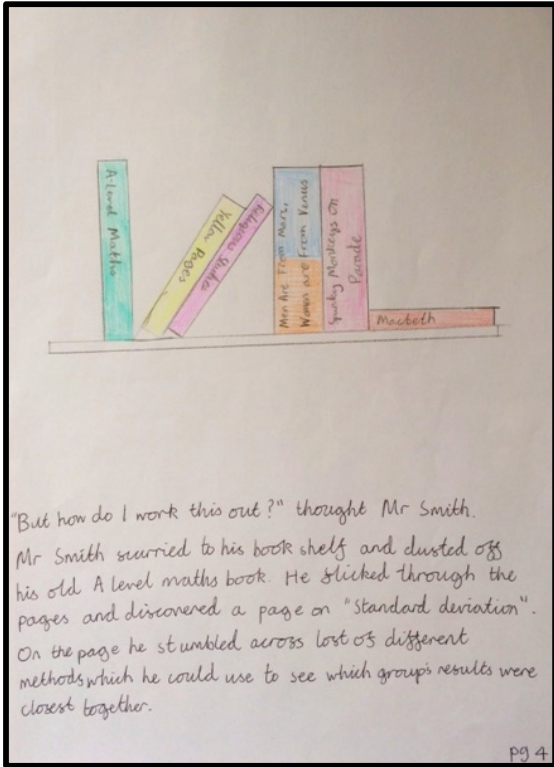 A-Level Maths
Yellow Pages
Religious Studies
Men Are From Mars,
Women are From Venus
Spunky Monkeys on
Parade
Macbeth
"But how do I work this out?" thought Mr Smith.
Mr Smith scurried to his book shelf and dusted off
his old A level maths book. He flicked through the
pages and discovered a page on "Standard deviation".
On the page he stumbled across lost of different
methods which he could use to see which group's results were
closest together.
pg 4